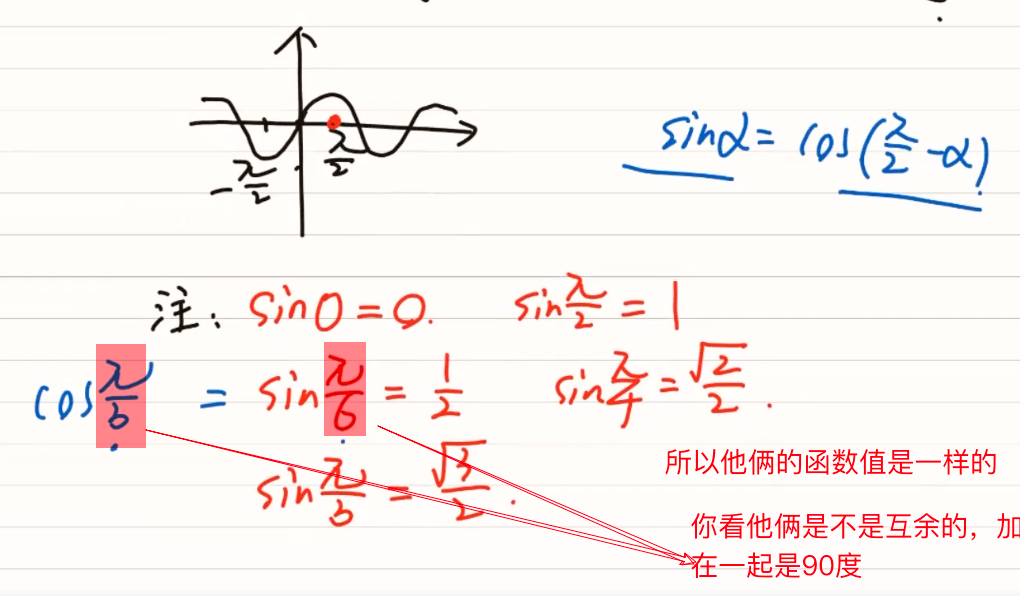 -π/2 π/2
sinα = cos(π/2 -α)
注: sin0=0. sin π/2 = 1
cos π/3 = sin π/6 = 1/2 sin π/4 = √2/2 .
所以他俩的函数值是一样的
sin π/3 = √3/2 .
你看他俩是不是互余的，加
在一起是90度